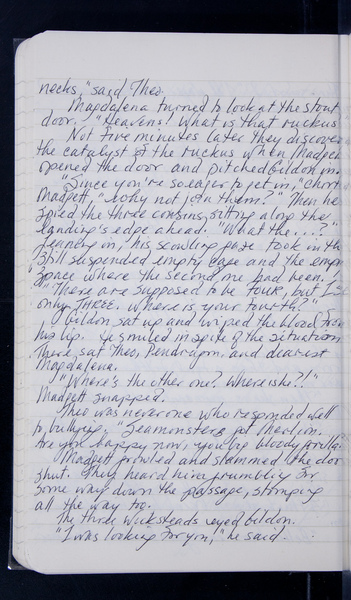 necks," said Theo.
Magdalena turned to look at the stout
door. "Heavens! What is that ruckus
Not five minutes later they discovere
the catalyst of the ruckus when Madgett
opened the door and pitched Gildon in.
"Since you're so eager to get in," chort
Madgett, "why not join them?" Then he
spied the three cousins sitting along the
landing's edge ahead. "What the...?"
leaning in, his scowling gaze took in th
still suspended empty cage and the emp
space where the second one had been.
"There are supposed to be four, but I see
only THREE. Where is your fourth?"
Gildon sat up and wiped the blood from
his lip. He smiled in spite of the situation
There sat Theo, Pendragon, and dearest
Magdalena.
"Where's the other one? Where is he?!"
Madgett snapped.
Theo was never one who responded well
to bullying. "Seamonsters got Merlin.
Are you happy now, you big bloody gorilla
Madgett growled and slammed the door
shut. They heard him grumbling for
some way down the passage, stomping
all the way too.
The three Wicksteads eyed Gildon.
"I was looking for you," he said.